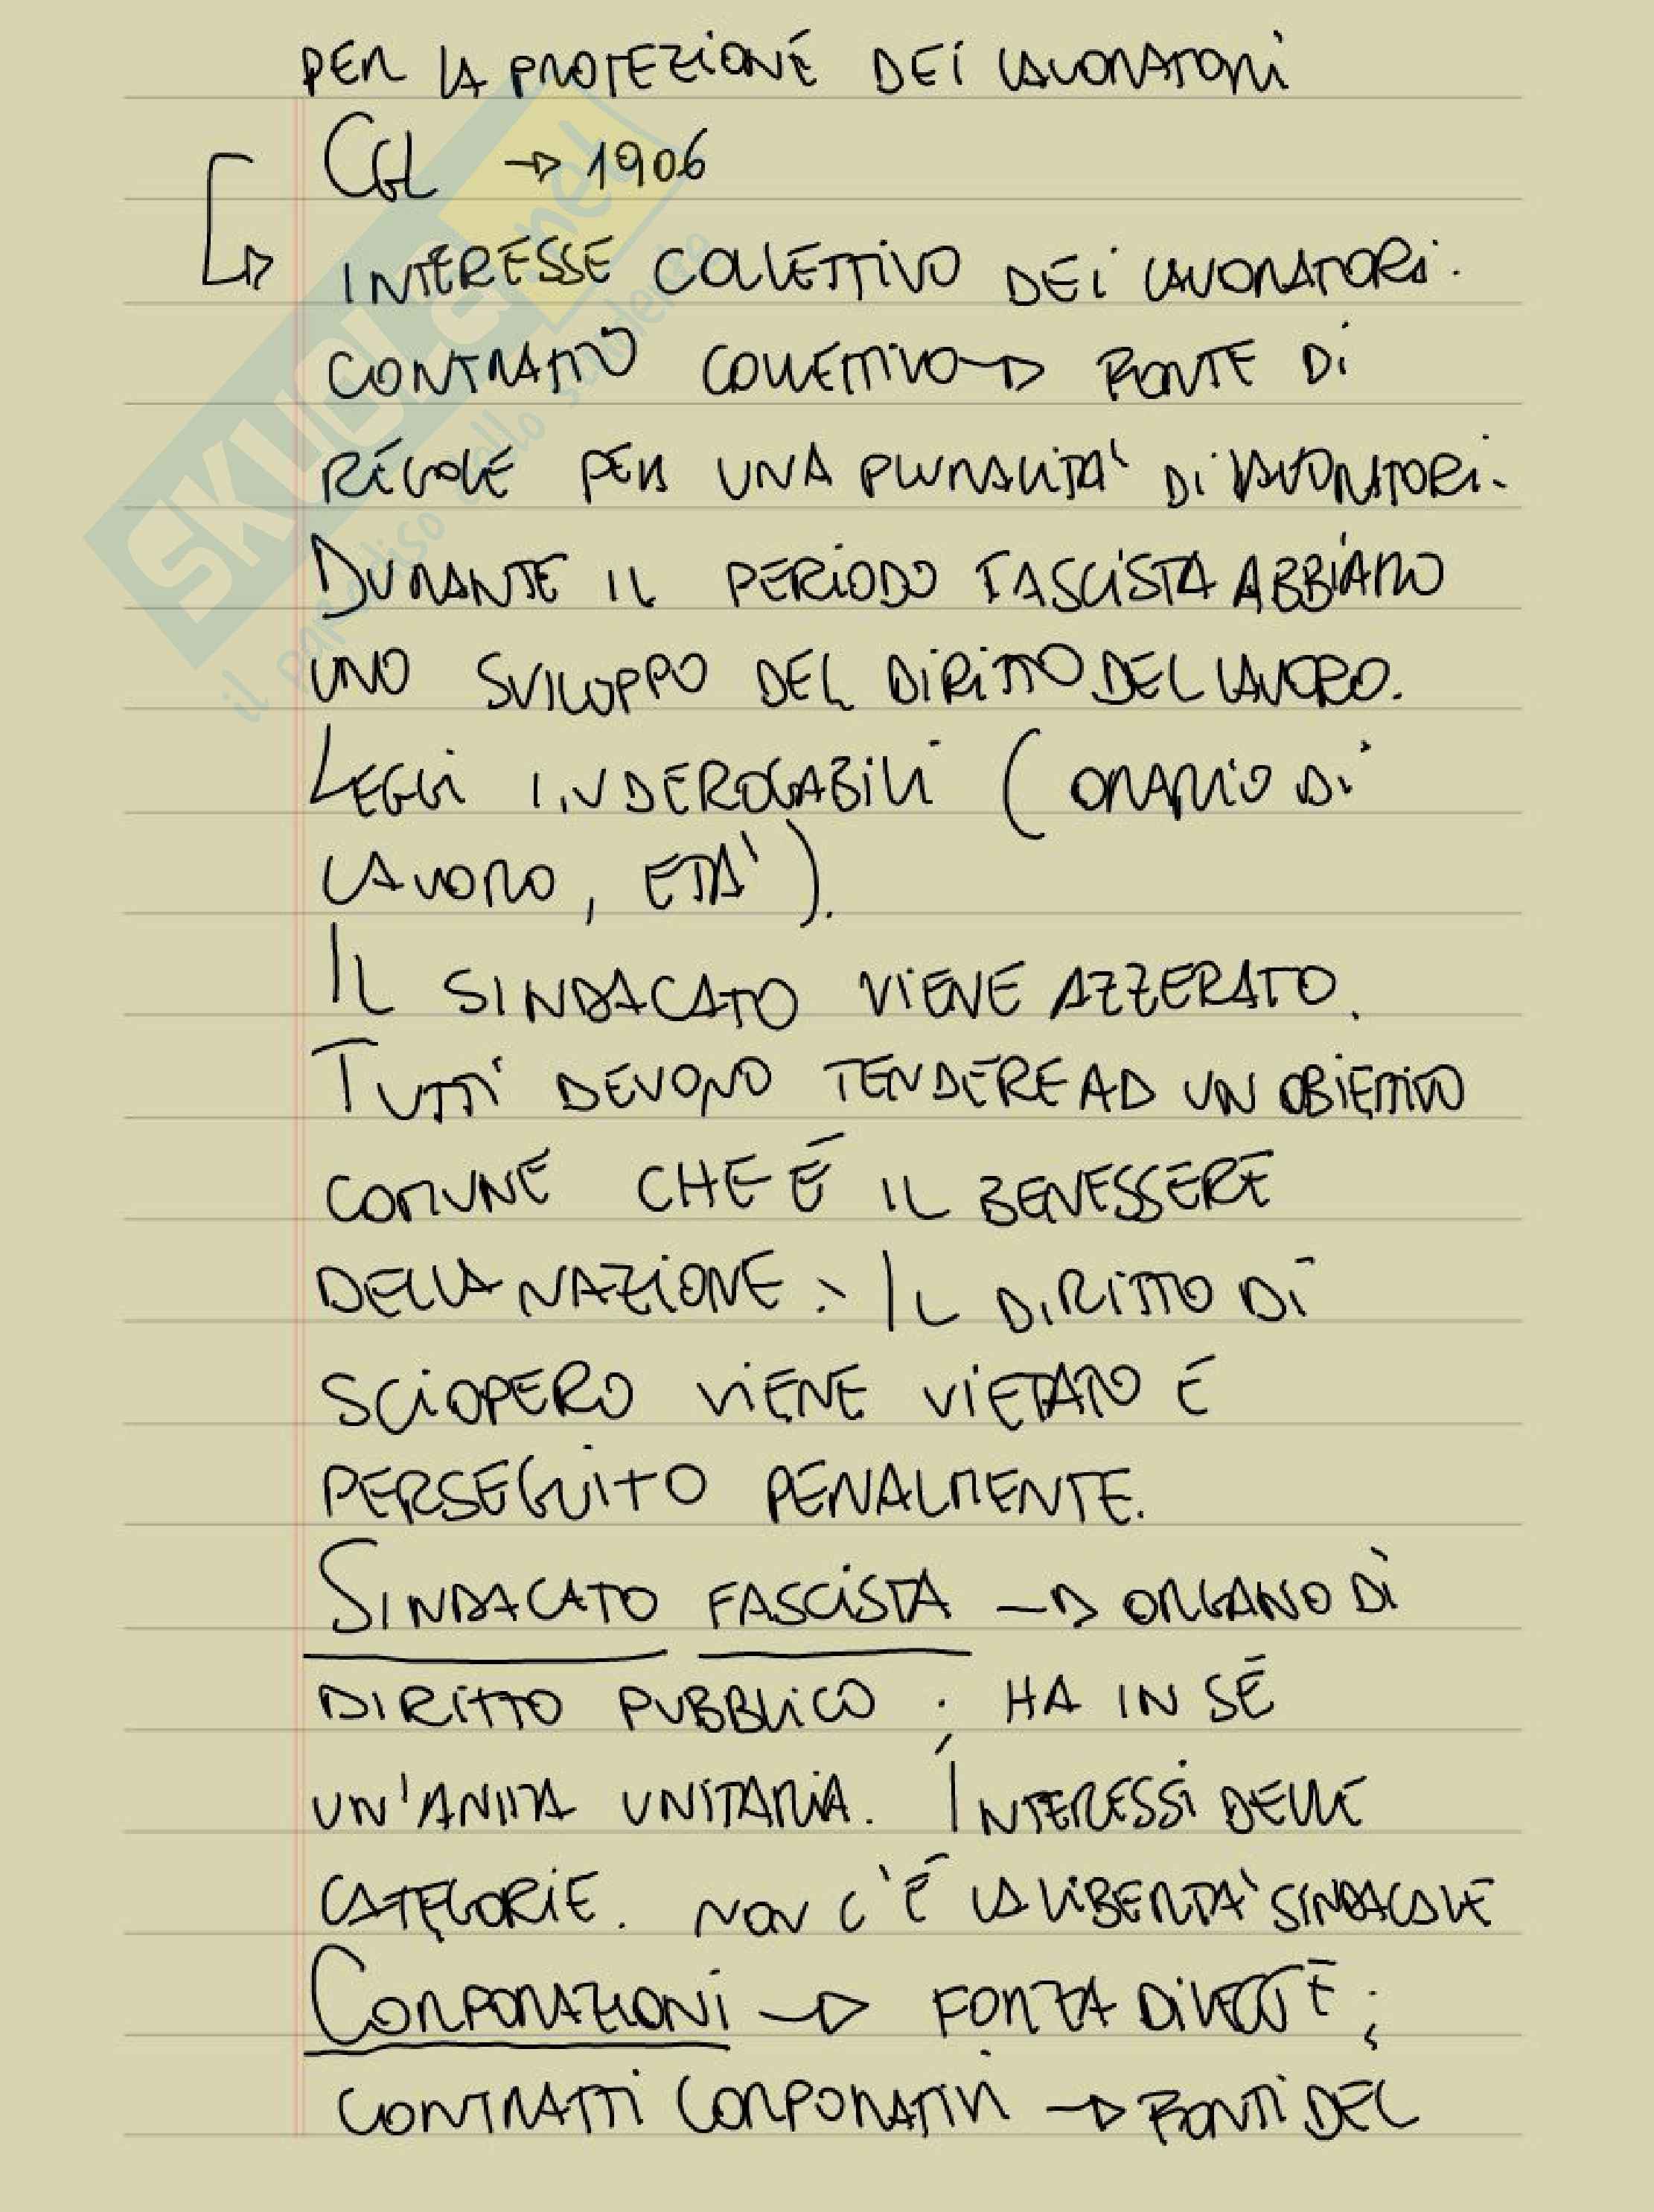 PER LA PROTEZIONE DEI LAVORATORI
CGL → 1906
↳ INTERESSE COLLETTIVO DEI LAVORATORI.
CONTRATTO COLLETTIVO → FONTE DI
REGOLE PER UNA PLURALITA' DI LAVORATORI.
DURANTE IL PERIODO FASCISTA ABBIAMO
UNO SVILUPPO DEL DIRITTO DEL LAVORO.
LEGGI INDEROGABILI (ORARIO DI
LAVORO, ETA').
IL SINDACATO VIENE AZZERATO.
TUTTI DEVONO TENDERE AD UN OBIETTIVO
COMUNE CHE É IL BENESSERE
DELLA NAZIONE. IL DIRITTO DI
SCIOPERO VIENE VIETATO E
PERSEGUITO PENALMENTE.
SINDACATO FASCISTA → ORGANO DI
DIRITTO PUBBLICO ; HA IN SÉ
UN'ANIMA UNITARIA. INTERESSI DELLE
CATEGORIE. NON C'É LA LIBERTA' SINDACALE
CORPORAZIONI → FORZA DI LEGGE ;
CONTRATTI CORPORATIVI → FONTI DEL
SKUOLA.net
il paradiso dello studente